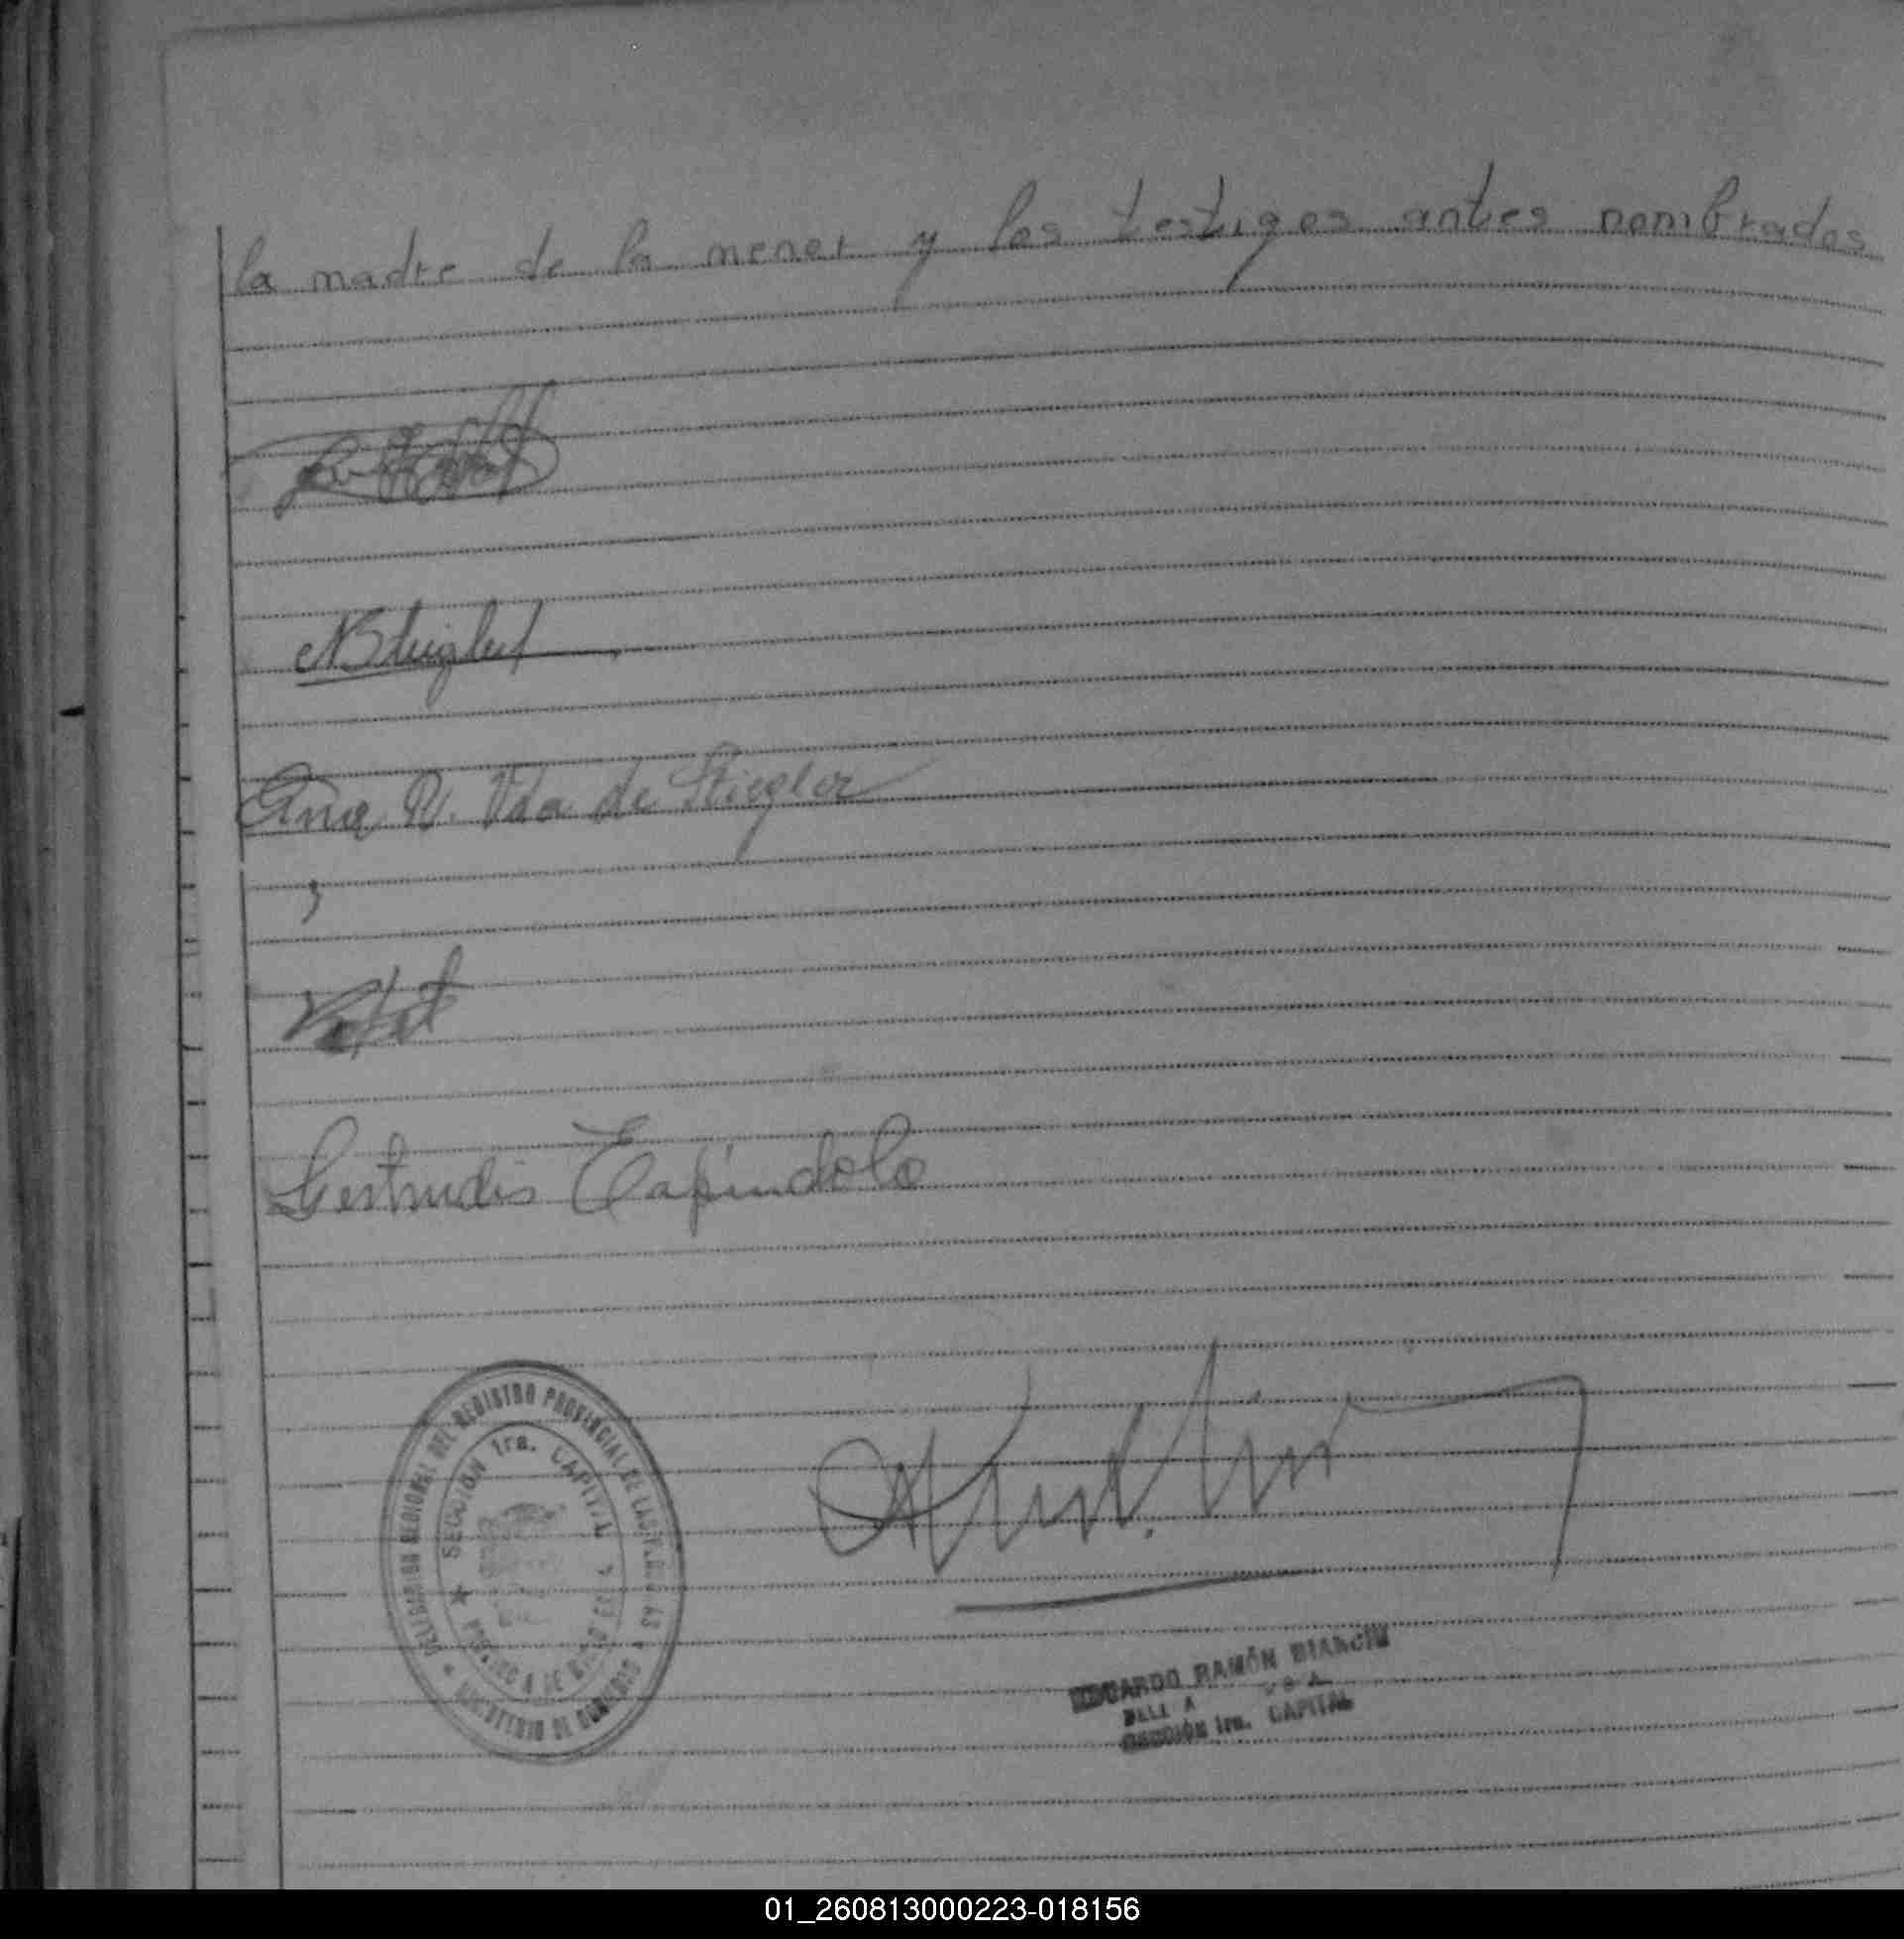 la madre de la menor y los testigos antes nombrados
NStiegler
Ana R. Vda de Stiegler
Gertrudis Espíndola
DELEGACION REGIONAL DEL REGISTRO PROVINCIAL DE LAS PERSONAS
SECCIÓN 1ra. CAPITAL
MINISTERIO DE GOBIERNO
EDUARDO RAMÓN BIANCHI
SECCIÓN 1ra. CAPITAL
01_260813000223-018156